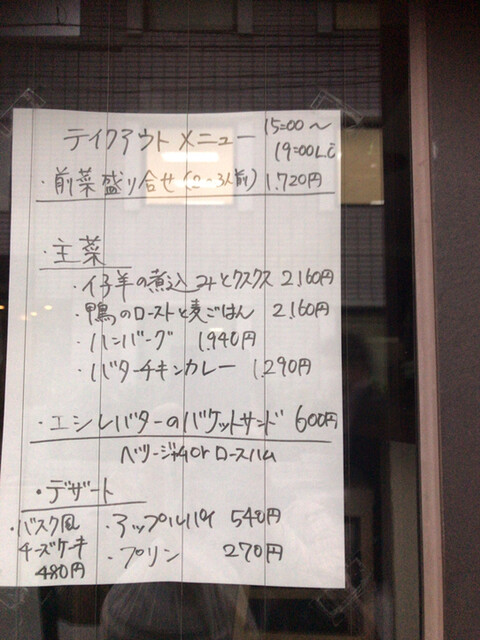 テイクアウトメニュー 15:00〜
19:00L.O
・前菜盛り合せ(2〜3人前) 1,720円
・主菜
・仔羊の煮込みとクスクス 2,160円
・鴨のローストと麦ごはん 2,160円
・ハンバーグ 1,940円
・バターチキンカレー 1,290円
・エシレバターのバゲットサンド 600円
ベリージャムorロースハム
・デザート
・バスク風
チーズケーキ
480円
・アップルパイ 540円
・プリン 270円